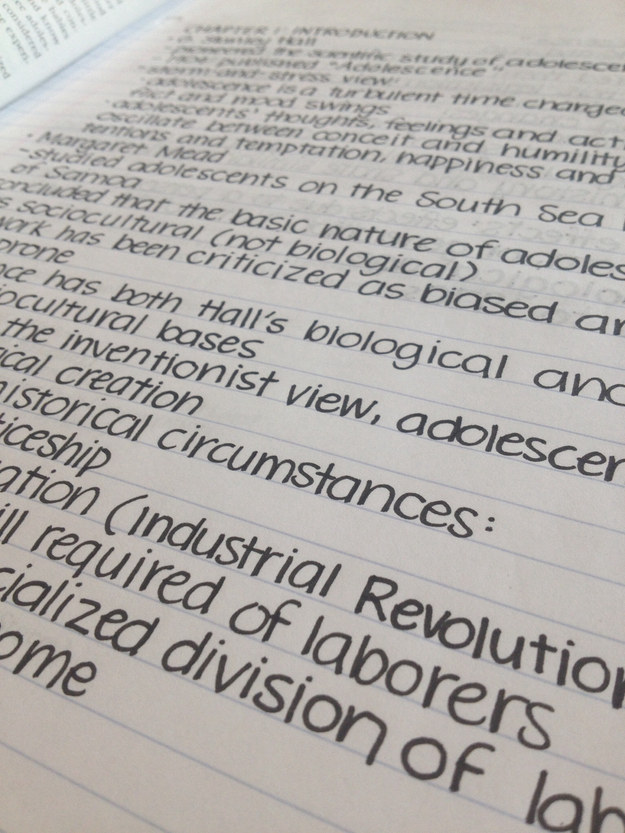 CHAPTER 1: INTRODUCTION
- G. Stanley Hall
- pioneered the scientific study of adolescen
- 1904 published "Adolescence"
- storm-and-stress view
- adolescence is a turbulent time charged
and mood swings
- adolescents' thoughts, feelings and act
oscillate between conceit and humility
tentions and temptation, happiness and
· Margaret Mead
- studied adolescents on the South Sea
of Samoa
oncluded that the basic nature of adoles
s sociocultural (not biological)
work has been criticized as biased an
prone
nce has both Hall's biological and
iocultural bases
the inventionist view, adolescen
ical creation
historical circumstances:
ticeship
ation (Industrial Revolution
ill required of laborers
cialized division of lab
ome